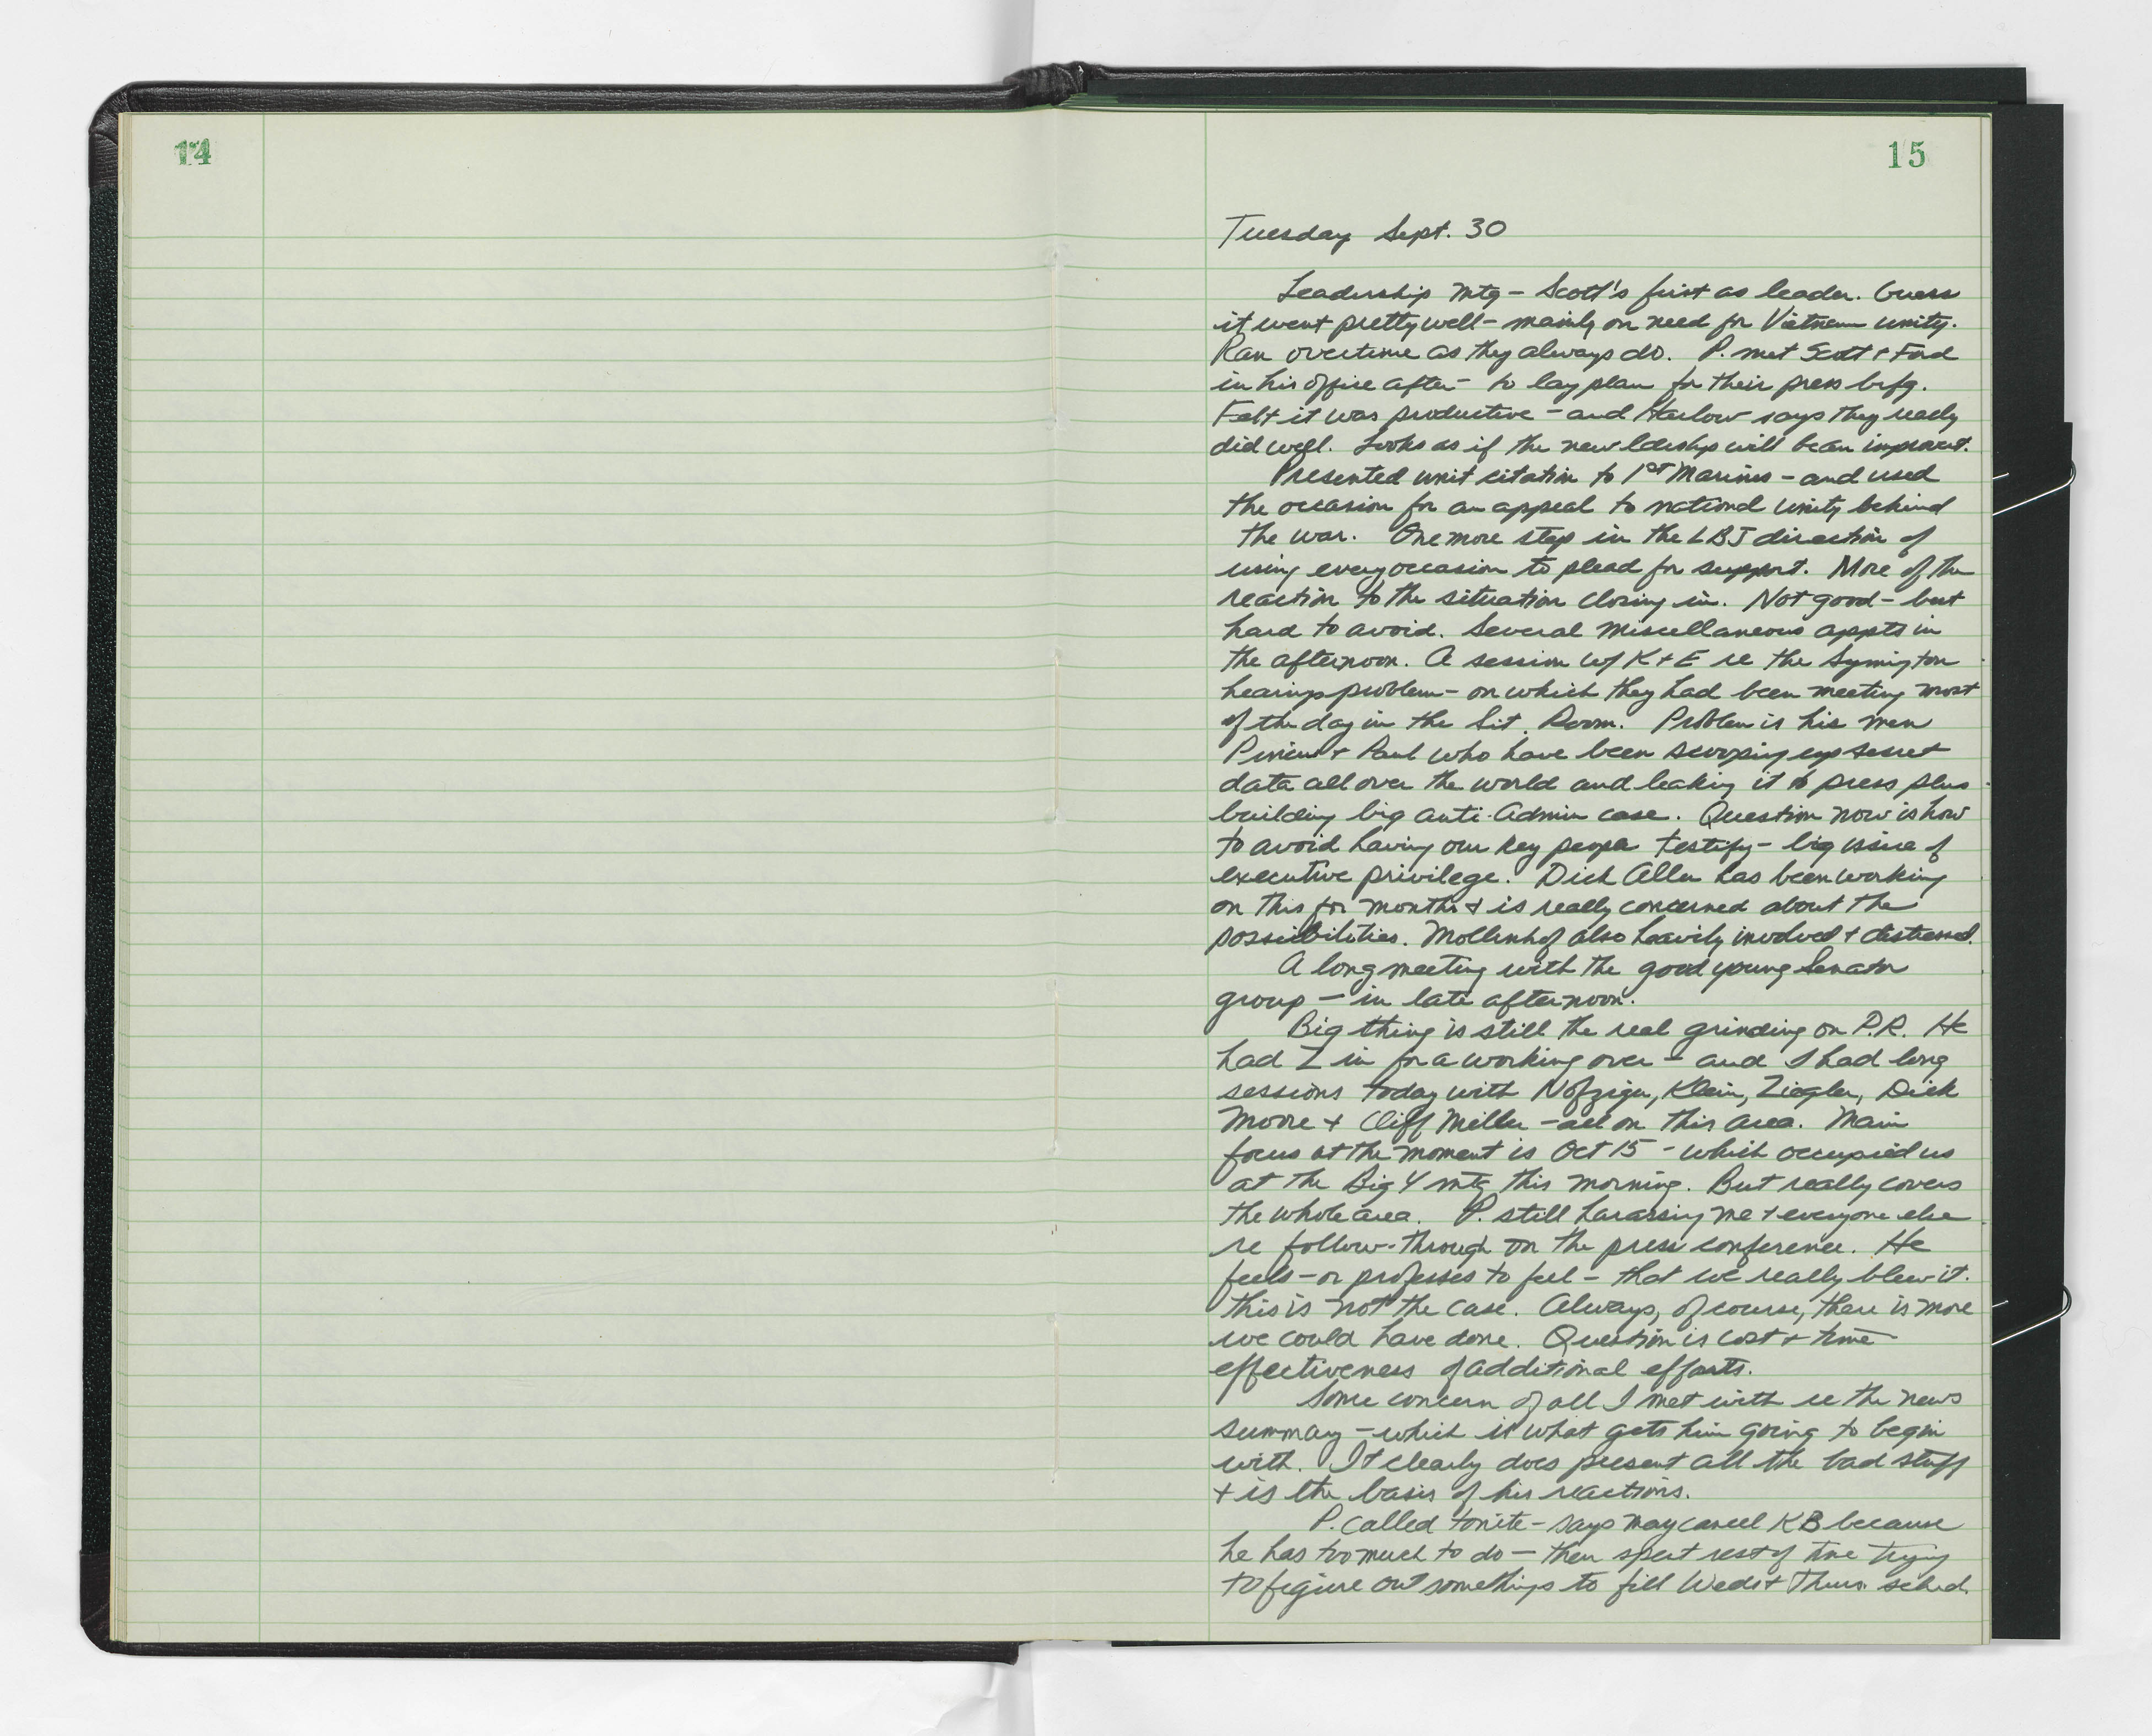 14
15
Tuesday Sept. 30
Leadership mtg - Scott's first as leader. Guess
it went pretty well - mainly on need for Vietnam unity.
Ran overtime as they always do. P. met Scott + Ford
in his office after - to lay plan for their press brfg.
Felt it was productive - and Harlow says they really
did well. Looks as if the new ldership will be an improvement.
Presented unit citation to 1st Marines - and used
the occasion for an appeal to national unity behind
the war. One more step in the LBJ direction of
using every occasion to plead for support. More of the
reaction to the situation closing in. Not good - but
hard to avoid. Several miscellaneous appts in
the afternoon. A session w/ K + E re the Symington
hearings problem - on which they had been meeting most
of the day in the Sit. Room. Problem is his men
Pincus + Paul who have been scooping up secret
data all over the world and leaking it to press plus
building big anti-Admin case. Question now is how
to avoid having our key people testify - big issue of
executive privilege. Dick Allen has been working
on this for months & is really concerned about the
possibilities. Mollenhof also heavily involved + distressed.
A long meeting with the good young Senator
group - in late afternoon.
Big thing is still the real grinding on P.R. He
had Z in for a working over - and I had long
sessions today with Nofziger, Klein, Ziegler, Dick
Moore + Cliff Miller - all on this area. Main
focus at the moment is Oct 15 - which occupied us
at the Big 4 mtg this morning. But really covers
the whole area. P. still harassing me + everyone else
re follow-through on the press conference. He
feels - or professes to feel - that we really blew it.
this is not the case. Always, of course, there is more
we could have done. Question is cost + time
effectiveness of additional efforts.
Some concern of all I met with re the news
summary - which is what gets him going to begin
with. It clearly does present all the bad stuff
+ is the basis of his reactions.
P. called tonite - says may cancel KB because
he has too much to do - then spent rest of time trying
to figure out somethings to fill Weds + Thurs. sched.